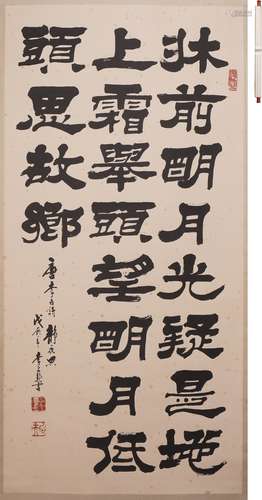 牀前明月光疑是地
上霜舉頭望明月低
頭思故鄉
唐李白詩靜夜思
戊辰年